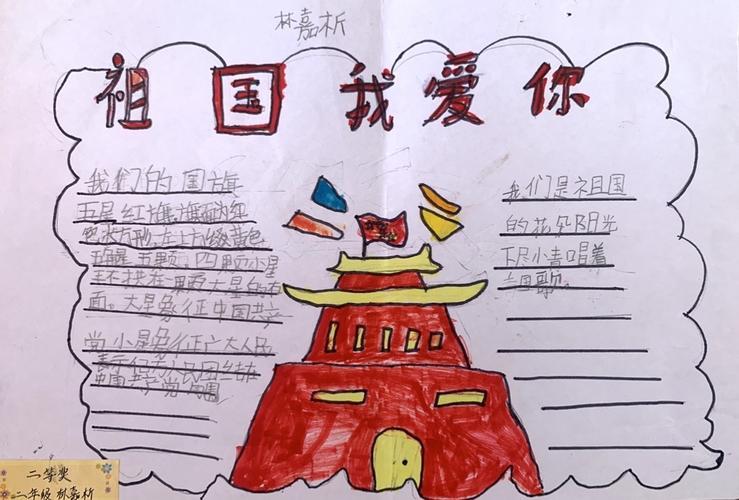 林嘉析
祖国我爱你
我们的国旗
五星红旗旗面为红
色长方形,左上方缀黄色
五角星五颗,四颗小星
环拱在一颗大星的右
面。大星象征中国共产
党小星象征广大人民
表示全为人民团结在
中国共产党周围
我们是祖国
的花朵阳光
下尽小青唱着
国歌。
二等奖
二年级 林嘉析